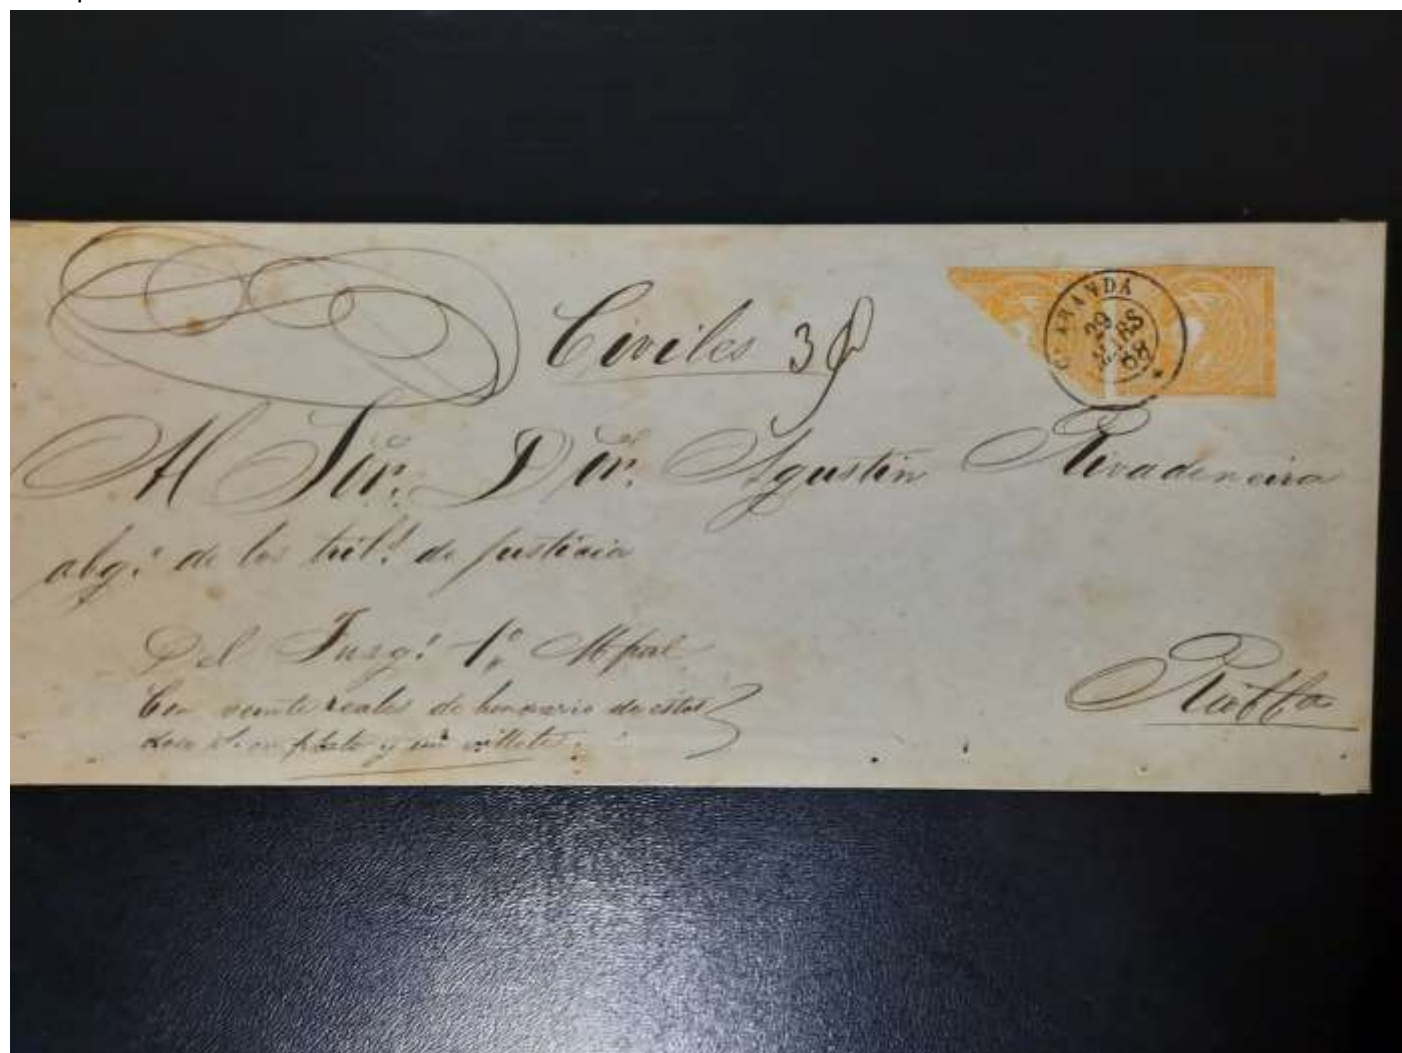 Civiles 3
GUARANDA
29
MARS
68
Al Sor. Dor. Agustin Rivadeneira
abg.o de los tribl.s de justicia
Del Juzg.o 1.o Mpal
Con veinte reales de honorario de estos
dos en plata y un villete.
Riobba